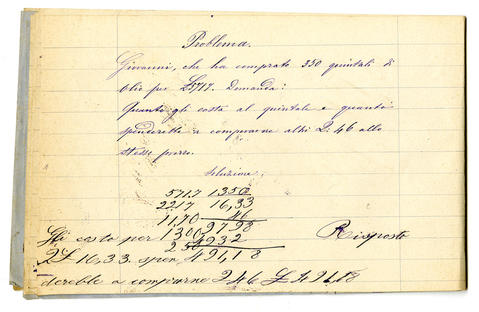 Problema.
Giovanni, che ha comprato 350 quintali di
olio per £5717. Domanda:
Quanto gli costa al quintale e quanto
spenderebbe a comprarne altri 2. 46 allo
stesso prezzo.
Soluzione.
5717 1350
2217 16,33
1170 46
1300 9798
250 4932
49118
Risposta
Gli costa per
2£ 16.33. spen
derebbe a comprarne 246 £ 491,18